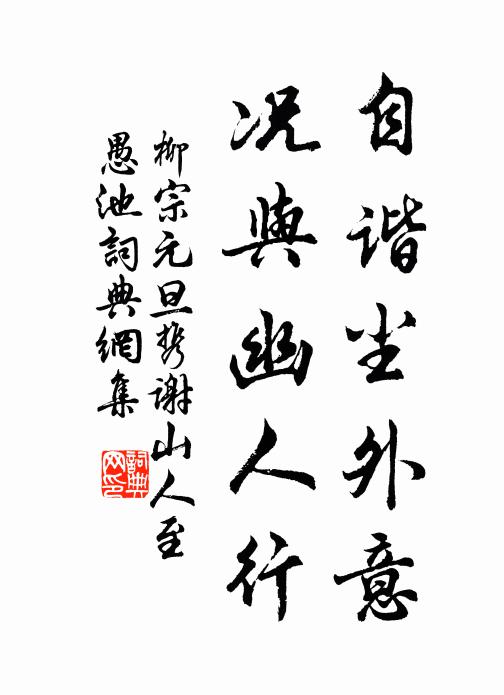 自谐尘外意
况与幽人行
柳宗元旦携谢山人至
愚池詞典網集
詞典网印